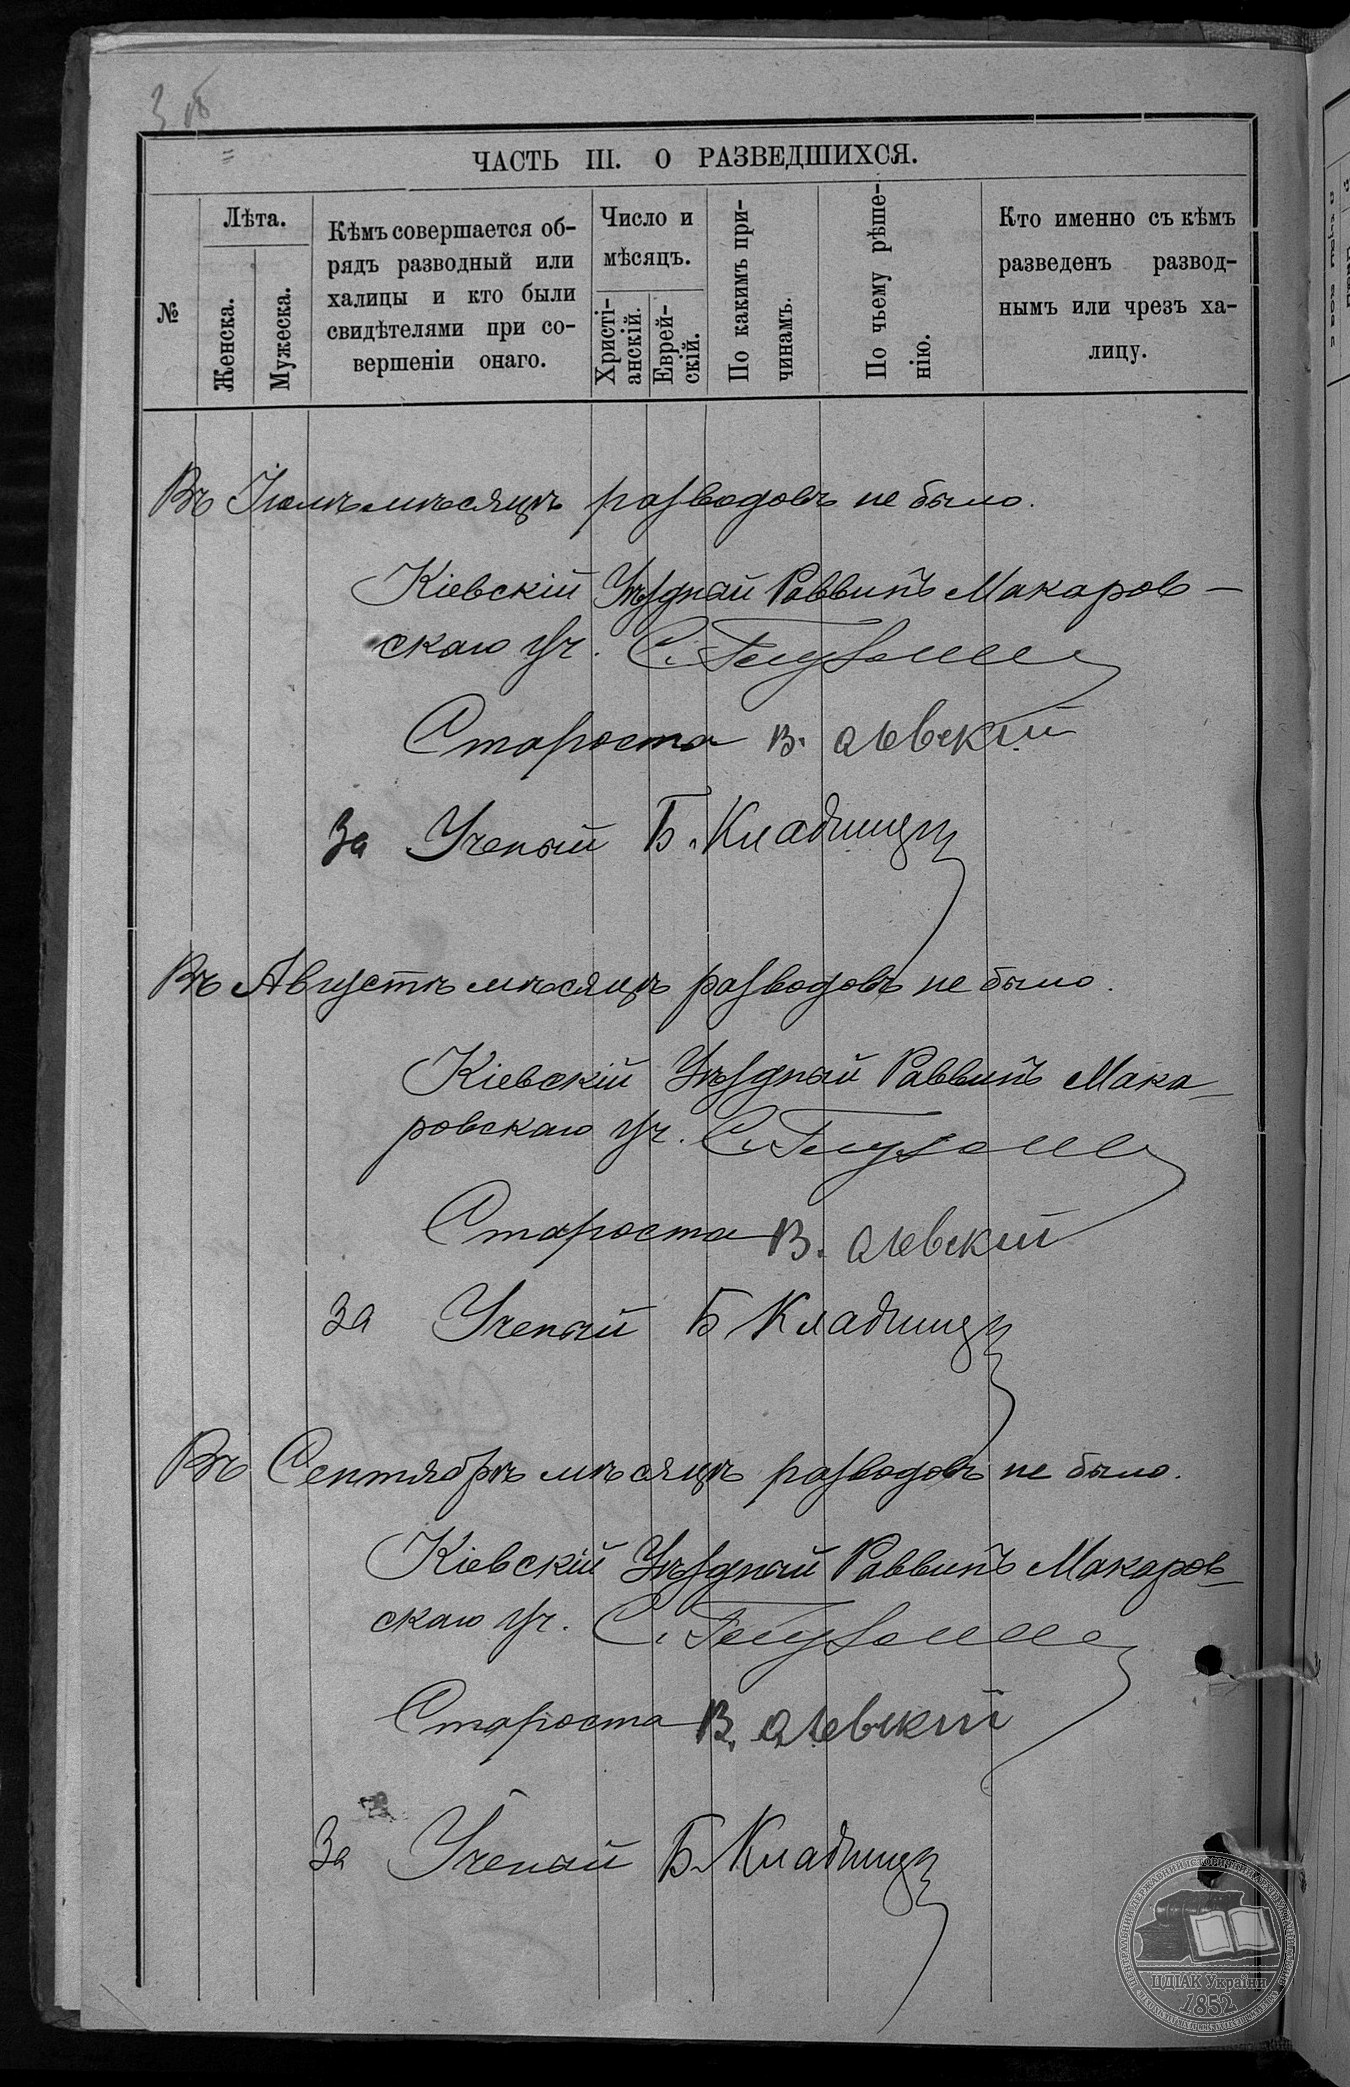 3 об
ЧАСТЬ III. О РАЗВЕДШИХСЯ.
№
Лѣта.
Женска.
Мужеска.
Кѣмъ совершается об-
рядъ разводный или
халицы и кто были
свидѣтелями при со-
вершеніи онаго.
Число и
мѣсяцъ.
Христі-
анскій.
Еврей-
скій.
По какимъ при-
чинамъ.
По чьему рѣше-
нію.
Кто именно съ кѣмъ
разведенъ развод-
нымъ или чрезъ ха-
лицу.
Въ Іюлѣ мѣсяцѣ разводовъ не было.
Кіевскій Уѣздный Раввинъ Макаров-
скаго уч. С.
Староста В.
За Ученый Б. Кладниц
Въ Августѣ мѣсяцѣ разводовъ не было.
Кіевскій Уѣздный Раввинъ Мака-
ровскаго уч. С.
Староста В.
За Ученый Б Кладниц
Въ Сентябрѣ мѣсяцѣ разводовъ не было.
Кіевскій Уѣздный Раввинъ Макаров-
скаго уч. С.
Староста В.
За Ученый Б. Кладниц
ЦДІАК України
1852